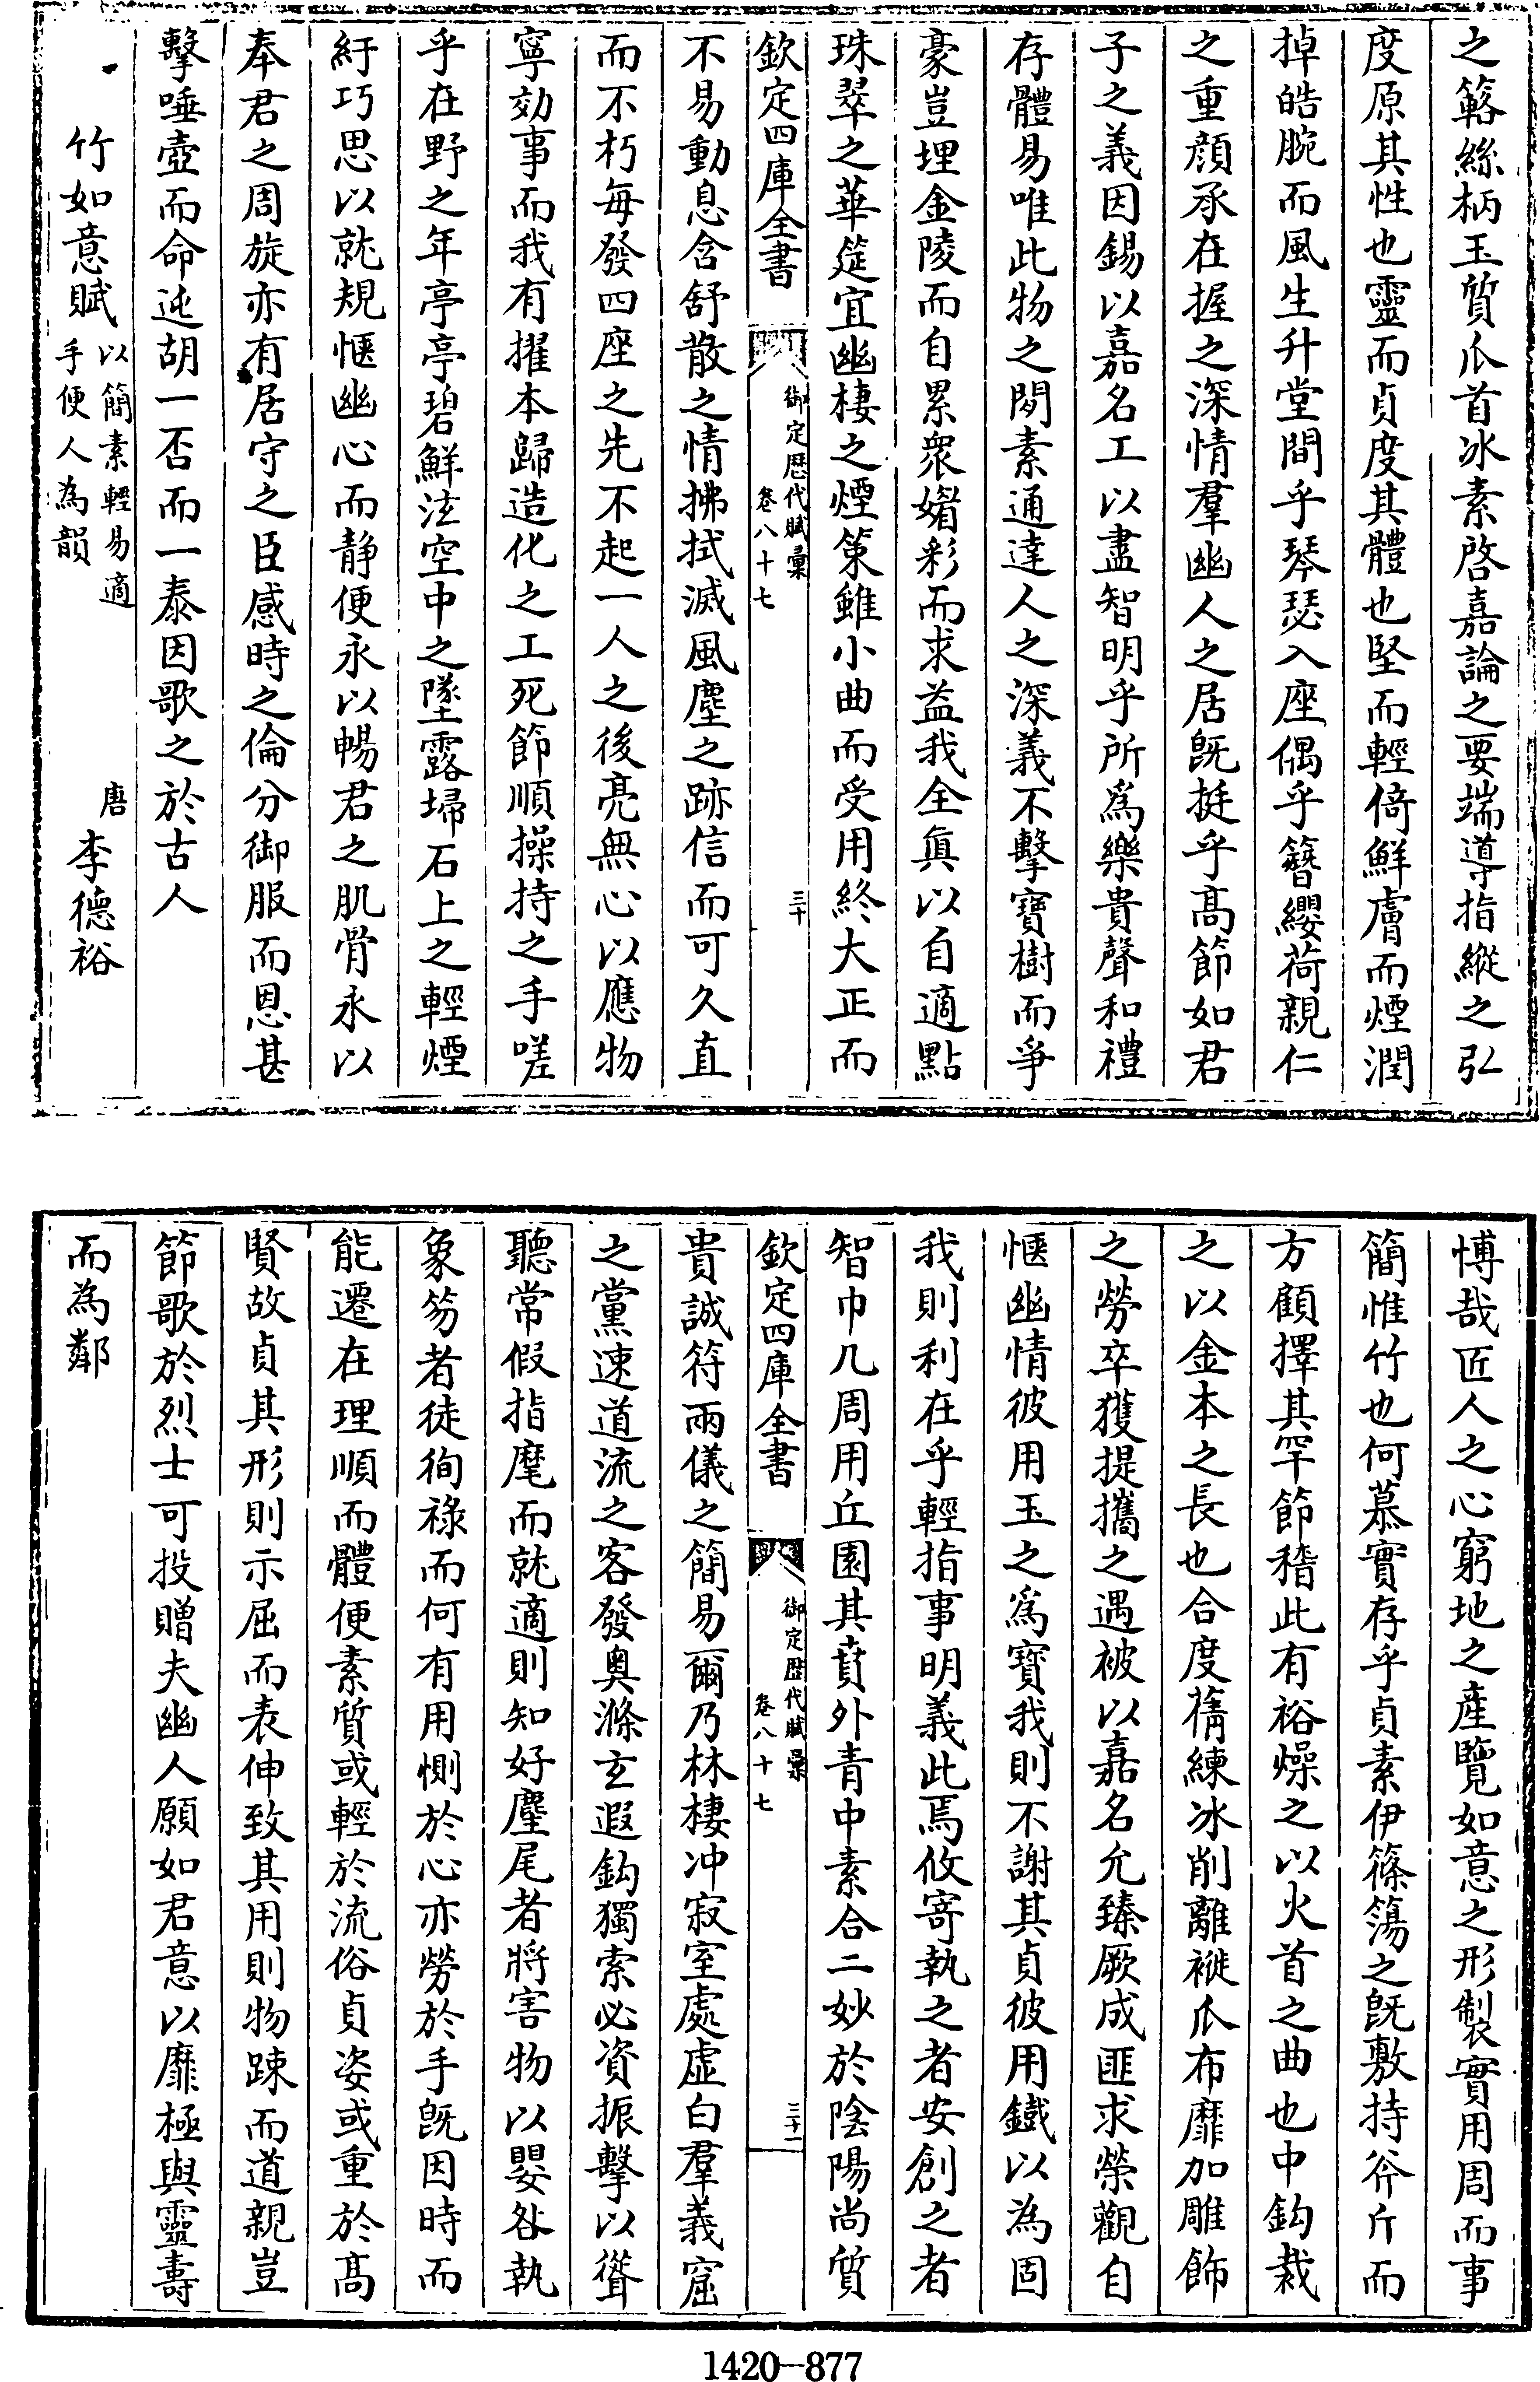 之簵絲柄玉質爪首冰素啓嘉論之要端導指縱之弘
度原其性也靈而貞度其體也堅而輕倚鮮膚而煙潤
掉皓腕而風生升堂間乎琴瑟入座偶乎簪纓荷親仁
之重顔承在握之深情羣幽人之居旣挺乎髙節如君
子之義因錫以嘉名工以盡智明乎所爲樂貴聲和禮
存體易唯此物之閑素通達人之深義不擊寶樹而爭
豪豈埋金陵而自累衆媚彩而求益我全眞以自適點
珠翠之華筵宜幽棲之煙策雖小曲而受用終大正而
欽定四庫全書
御定歴代賦彙
卷八十七
三十
不易動息含舒散之情拂拭滅風塵之跡信而可久直
而不朽每發四座之先不起一人之後亮無心以應物
寧効事而我有擢本歸造化之工死節順操持之手嗟
乎在野之年亭亭碧鮮泫空中之墜露埽石上之輕煙
紆巧思以就規愜幽心而静便永以暢君之肌骨永以
奉君之周旋亦有居守之臣感時之倫分御服而恩甚
擊唾壺而命迍胡一否而一泰因歌之於古人
竹如意賦 以簡素輕易適手便人為韻 唐 李德裕
博哉匠人之心窮地之産覽如意之形製實用周而事
簡惟竹也何慕實存乎貞素伊篠簜之旣敷持斧斤而
方顧擇其罕節稽此有裕燥之以火首之曲也中鈎裁
之以金本之長也合度蒨練冰削離褷爪布靡加雕飾
之勞卒獲提攜之遇被以嘉名允臻厥成匪求榮觀自
愜幽情彼用玉之爲寶我則不謝其貞彼用鐵以為固
我則利在乎輕指事明義此焉攸寄執之者安創之者
智巾几周用丘園其賁外青中素合二妙於陰陽尚質
欽定四庫全書
御定歴代賦彙
卷八十七
三十一
貴誠符兩儀之簡易爾乃林棲冲寂室處虛白羣義窟
之黨速道流之客發奥滌玄遐鈎獨索必資振擊以聳
聽常假指麾而就適則知好麈尾者將害物以嬰咎執
象笏者徒徇祿而何有用惻於心亦勞於手旣因時而
能遷在理順而體便素質或輕於流俗貞姿或重於髙
賢故貞其形則示屈而表伸致其用則物踈而道親豈
節歌於烈士可投贈夫幽人願如君意以靡極與靈壽
而為鄰
1420-877